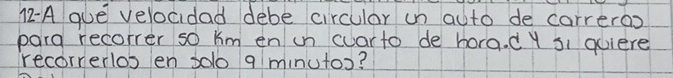 12-A qué velocidad debe circular un auto de carreras
para recorrer 50 Km en un cuarto de hora.¿Y si quiere
recorrerlos en solo 9 minutos?